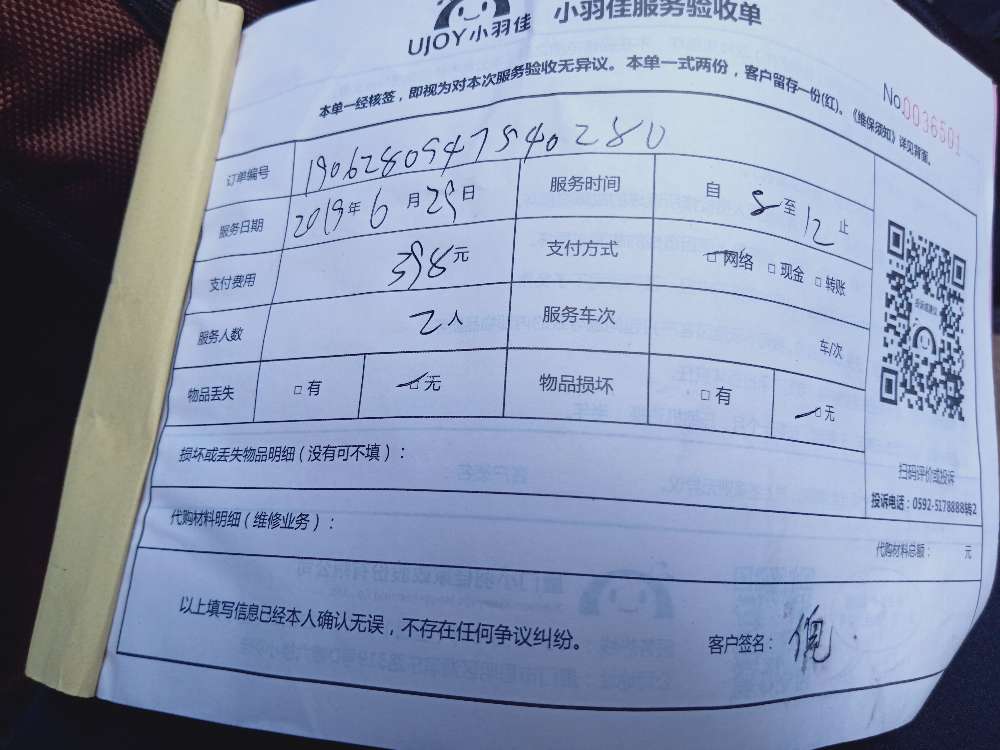 UJOY小羽佳 小羽佳服务验收单
本单一经核签，即视为对本次服务验收无异议。本单一式两份，客户留存一份(红)。《维保须知》详见背面。
No.0036501
订单编号 1906280947940280
服务日期 2019年6月29日 服务时间 自8至12止
支付费用 398元 支付方式 □网络 □现金 □转账
服务人数 2人 服务车次 车/次
物品丢失 □有 □无 物品损坏 □有 □无
损坏或丢失物品明细（没有可不填）：
扫码评价或投诉
投诉电话：0592-5178888转2
代购材料明细（维修业务）：
代购材料总额： 元
以上填写信息已经本人确认无误，不存在任何争议纠纷。 客户签名：